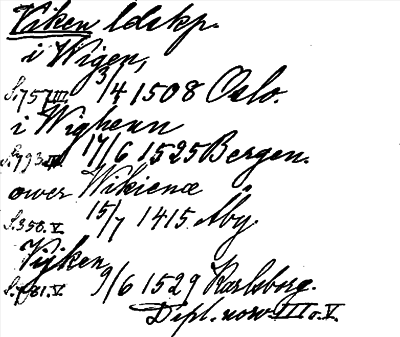 Viken ldskp.
i Wigen,
S.757 III 3/4 1508 Oslo.
i Wighenn
S.793 III 17/6 1525 Bergen.
ower Wikienæ
S.356.V 15/7 1415 Åby
Vijken
S.781.V 9/6 1529 Karlsborg.
Dipl. norv. III o. V.